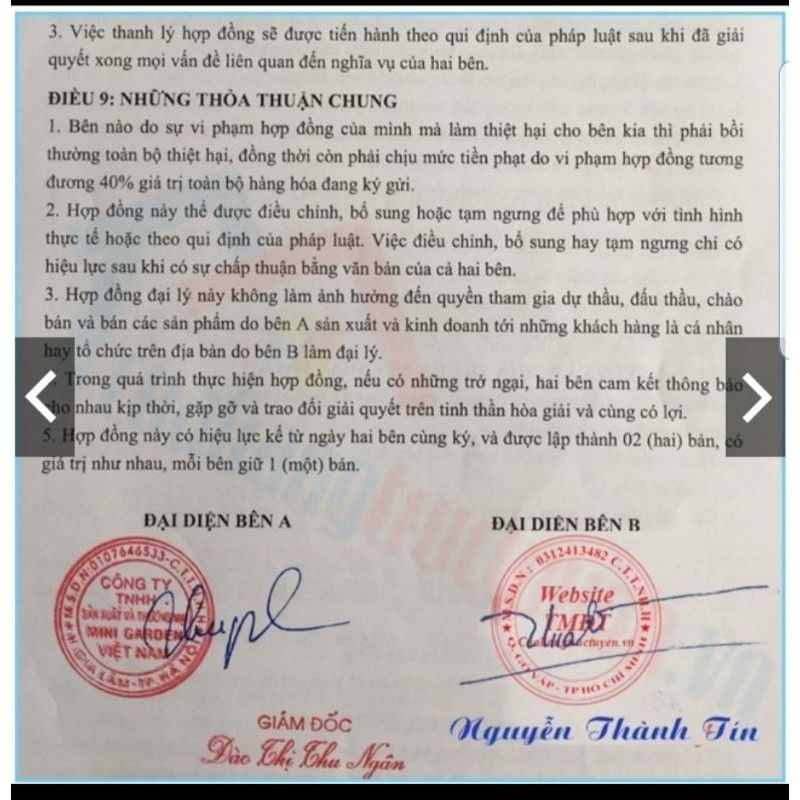 3. Việc thanh lý hợp đồng sẽ được tiến hành theo qui định của pháp luật sau khi đã giải
quyết xong mọi vấn đề liên quan đến nghĩa vụ của hai bên.
ĐIỀU 9: NHỮNG THỎA THUẬN CHUNG
1. Bên nào do sự vi phạm hợp đồng của mình mà làm thiệt hại cho bên kia thì phải bồi
thường toàn bộ thiệt hại, đồng thời còn phải chịu mức tiền phạt do vi phạm hợp đồng tương
đương 40% giá trị toàn bộ hàng hóa đang ký gửi.
2. Hợp đồng này thể được điều chỉnh, bổ sung hoặc tạm ngưng để phù hợp với tình hình
thực tế hoặc theo qui định của pháp luật. Việc điều chỉnh, bổ sung hay tạm ngưng chỉ có
hiệu lực sau khi có sự chấp thuận bằng văn bản của cả hai bên.
3. Hợp đồng đại lý này không làm ảnh hưởng đến quyền tham gia dự thầu, đấu thầu, chào
bán và bán các sản phẩm do bên A sản xuất và kinh doanh tới những khách hàng là cá nhân
hay tổ chức trên địa bàn do bên B làm đại lý.
Trong quá trình thực hiện hợp đồng, nếu có những trở ngại, hai bên cam kết thông báo
cho nhau kịp thời, gặp gỡ và trao đổi giải quyết trên tinh thần hòa giải và cùng có lợi.
5. Hợp đồng này có hiệu lực kể từ ngày hai bên cùng ký, và được lập thành 02 (hai) bản, có
giá trị như nhau, mỗi bên giữ 1 (một) bản.
ĐẠI DIỆN BÊN A
ĐẠI DIỆN BÊN B
M.S.D.N:0107646533-C.T.T.N.H.H
CÔNG TY
TNHH
SẢN XUẤT VÀ THƯƠNG MẠI
MINI GARDEN
VIỆT NAM
GIA LÂM-TP.HÀ NỘI
M.S.D.N: 0312413482 C.T.T.N.H.H
Website
TMĐT
Q.GÒ VẤP - TP HỒ CHÍ MINH
GIÁM ĐỐC
Đào Thị Thu Ngân
Nguyễn Thành Tín